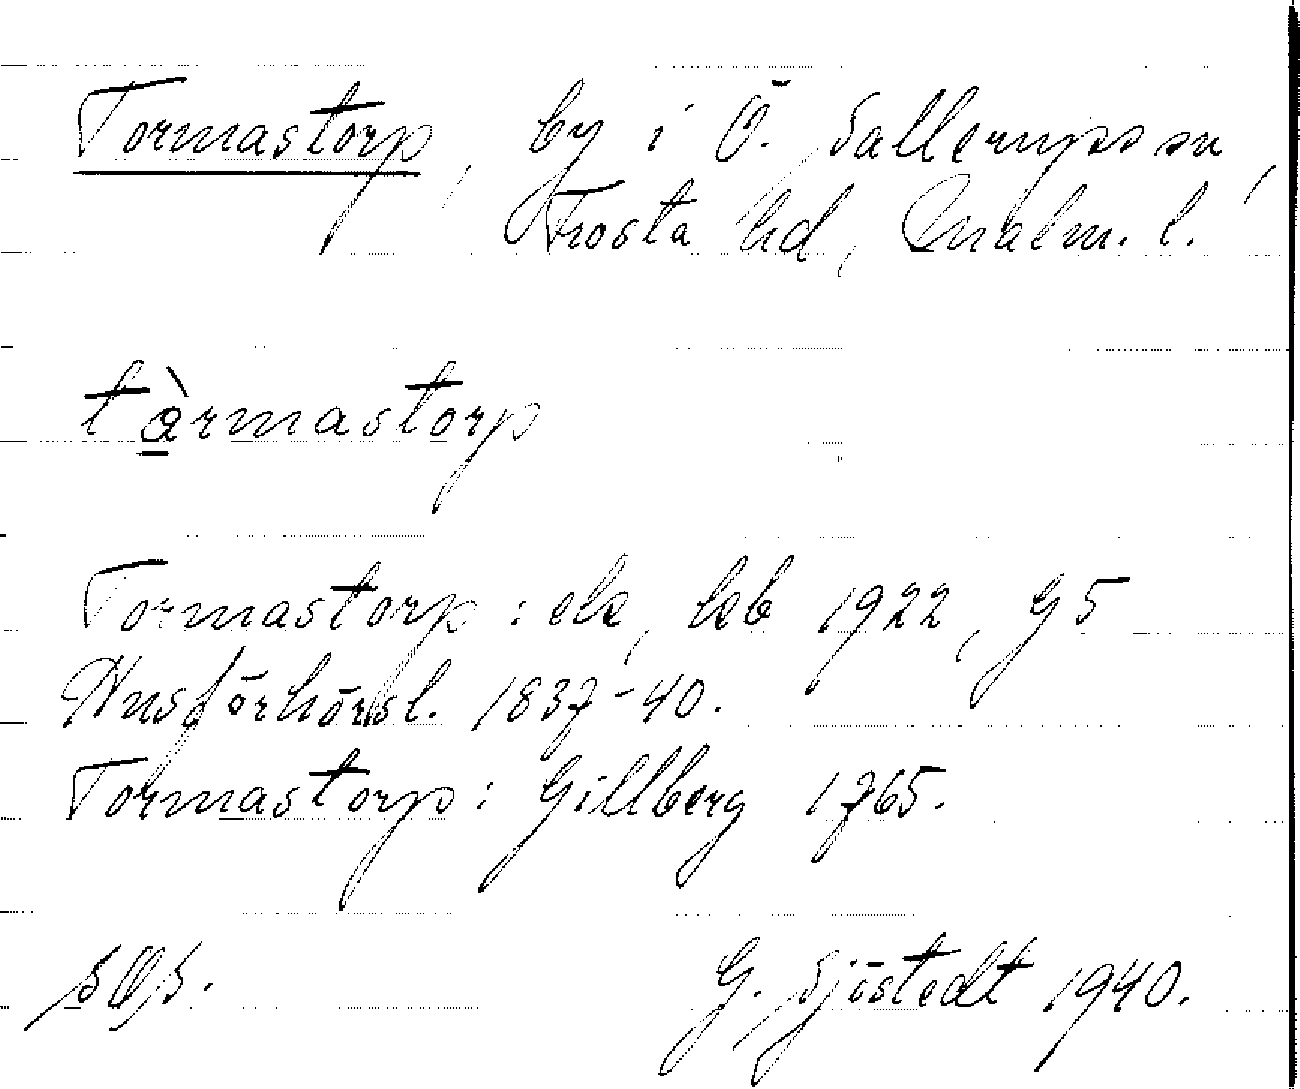 Tormastorp, by i Ö. Sallerups sn,
Frosta hd, Malm. l.
tàrmastorp
Tormastorp: ek, kb 1922, G5
Husförhörsl. 1837-40.
Tormastorp: Gillberg 1765.
G. Sjöstedt 1940.